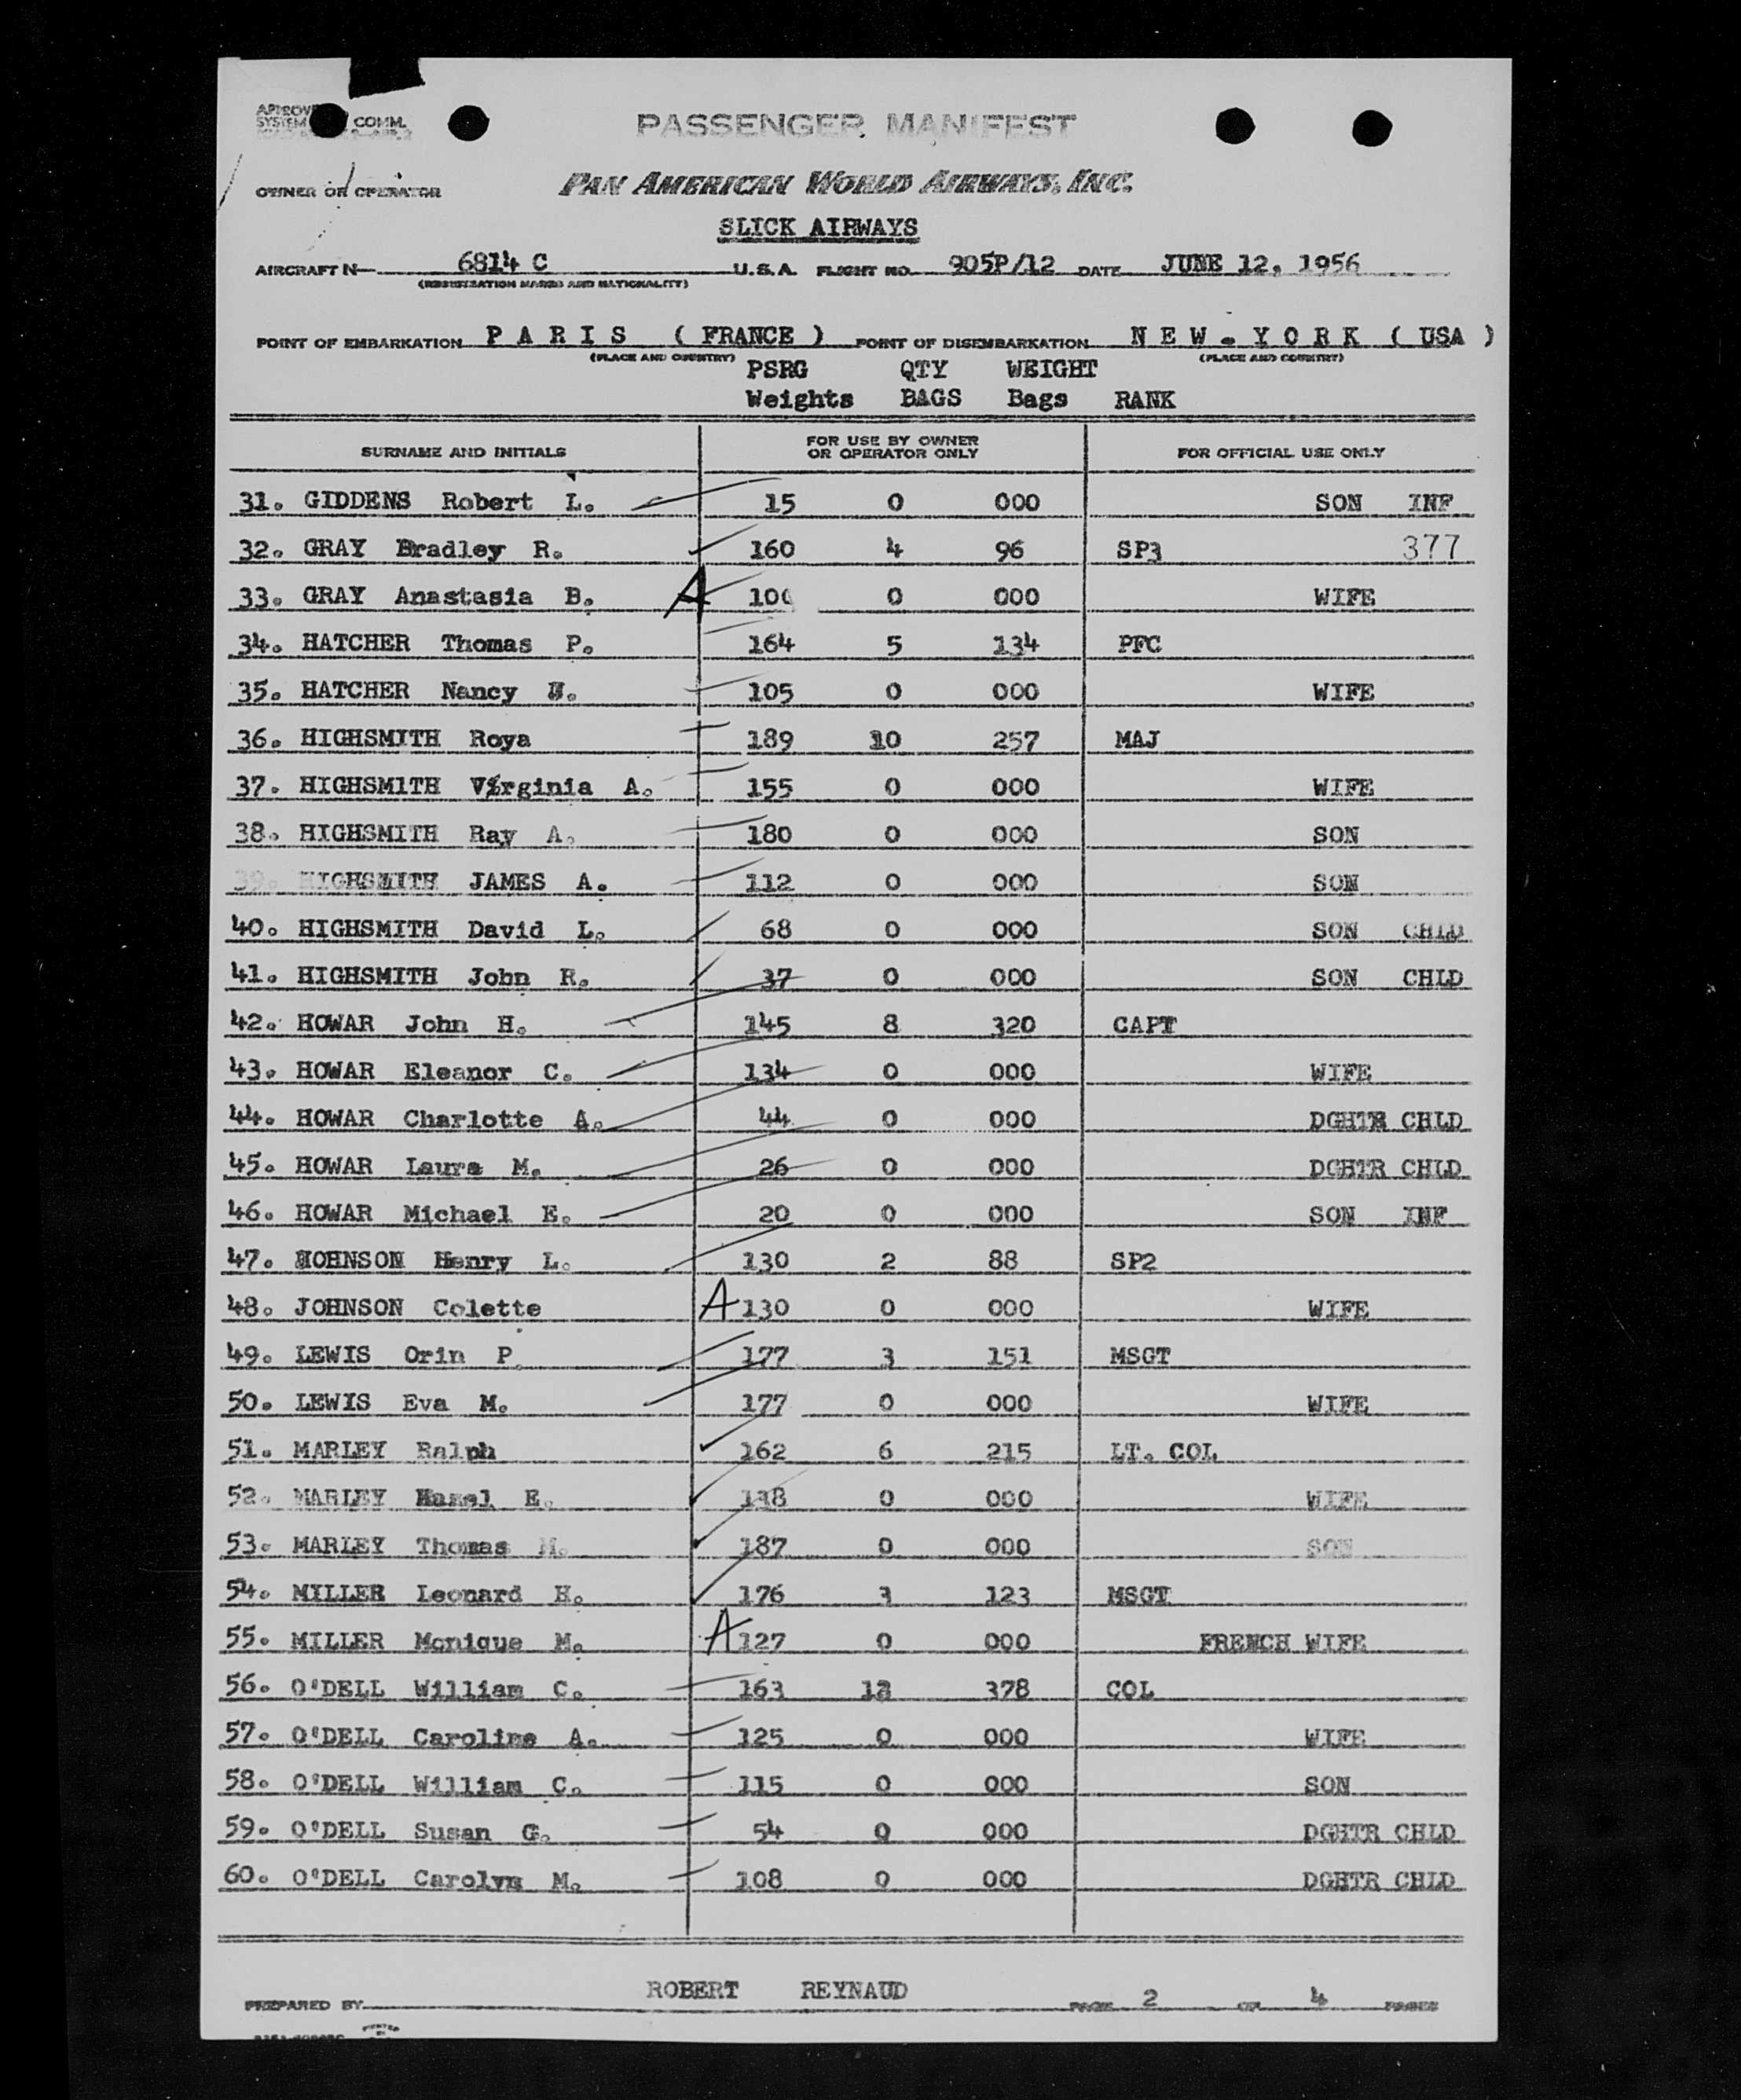 APPROV COMM.
SYSTEM
PASSENGER MANIFEST
OWNER OR OPERATOR PAN AMERICAN WORLD AIRWAYS, INC.
SLICK AIRWAYS
AIRCRAFT N 6814 C U.S.A. FLIGHT NO. 905P/12 DATE JUNE 12, 1956
(REGISTRATION MARKS AND NATIONALITY)
POINT OF EMBARKATION P A R I S ( FRANCE ) POINT OF DISEMBARKATION N E W - Y O R K ( USA )
(PLACE AND COUNTRY) (PLACE AND COUNTRY)
PSRG QTY WEIGHT
Weights BAGS Bags RANK
SURNAME AND INITIALS FOR USE BY OWNER OR OPERATOR ONLY FOR OFFICIAL USE ONLY
31. GIDDENS Robert L. 15 0 000 SON INF
32. GRAY Bradley R. 160 4 96 SP3 377
33. GRAY Anastasia B. A 100 0 000 WIFE
34. HATCHER Thomas P. 164 5 134 PFC
35. HATCHER Nancy 105 0 000 WIFE
36. HIGHSMITH Roya 189 10 257 MAJ
37. HIGHSMITH Virginia A. 155 0 000 WIFE
38. HIGHSMITH Ray A. 180 0 000 SON
39. HIGHSMITH JAMES A. 112 0 000 SON
40. HIGHSMITH David L. 68 0 000 SON CHLD
41. HIGHSMITH John R. 37 0 000 SON CHLD
42. HOWAR John H. 145 8 320 CAPT
43. HOWAR Eleanor C. 134 0 000 WIFE
44. HOWAR Charlotte A. 44 0 000 DGHTR CHLD
45. HOWAR Laura M. 26 0 000 DGHTR CHLD
46. HOWAR Michael E. 20 0 000 SON INF
47. JOHNSON Henry L. 130 2 88 SP2
48. JOHNSON Colette A 130 0 000 WIFE
49. LEWIS Orin P. 177 3 151 MSGT
50. LEWIS Eva M. 177 0 000 WIFE
51. MARLEY Ralph 162 6 215 LT. COL
52. MARLEY Hazel E. 138 0 000 WIFE
53. MARLEY Thomas M. 187 0 000 SON
54. MILLER Leonard H. 176 3 123 MSGT
55. MILLER Monique M. A 127 0 000 FRENCH WIFE
56. O'DELL William C. 163 378 COL
57. O'DELL Caroline A. 125 0 000 WIFE
58. O'DELL William C. 115 0 000 SON
59. O'DELL Susan G. 54 0 000 DGHTR CHLD
60. O'DELL Carolyn M. 108 0 000 DGHTR CHLD
PREPARED BY ROBERT REYNAUD PAGE 2 OF 4 PAGES
PRINTED